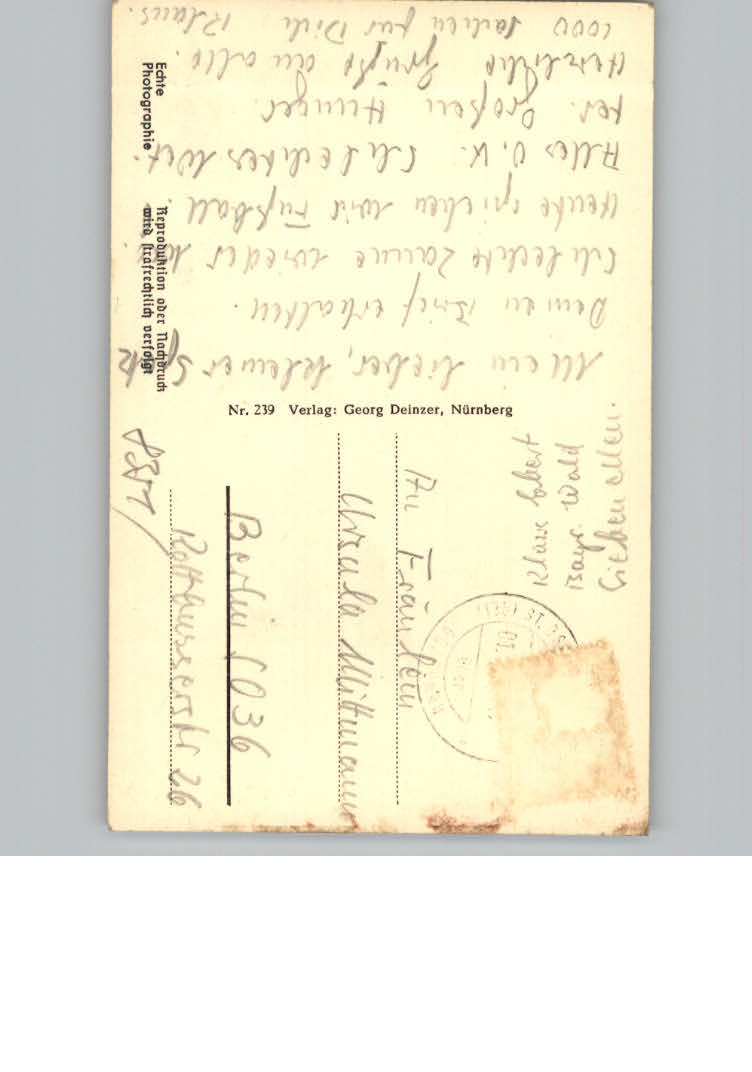 Mein lieber, kleiner Spatz
Deinen Brief erhalten.
Schlechte Laune wieder
Heute spielen wir Fußball.
Alles O.K. Schlechtes Wet-
ter. Großen Hunger.
Herzliche Grüße an alle.
1000 für Dich Klaus.
Echte
Photographie
Reproduktion oder Nachdruck
wird strafrechtlich verfolgt
Nr. 239 Verlag: Georg Deinzer, Nürnberg
Klaus
Bayr. Wald
An Fräulein
Ursula Mittmann
Berlin SO36
26